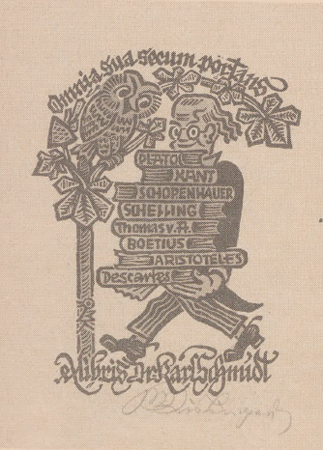 Omnia sua secum portans
PLATO
KANT
SCHOPENHAUER
SCHELLING
Thomas v. A.
BOETIUS
ARISTOTELES
Descartes
Exlibris Dr Karl Schmidt